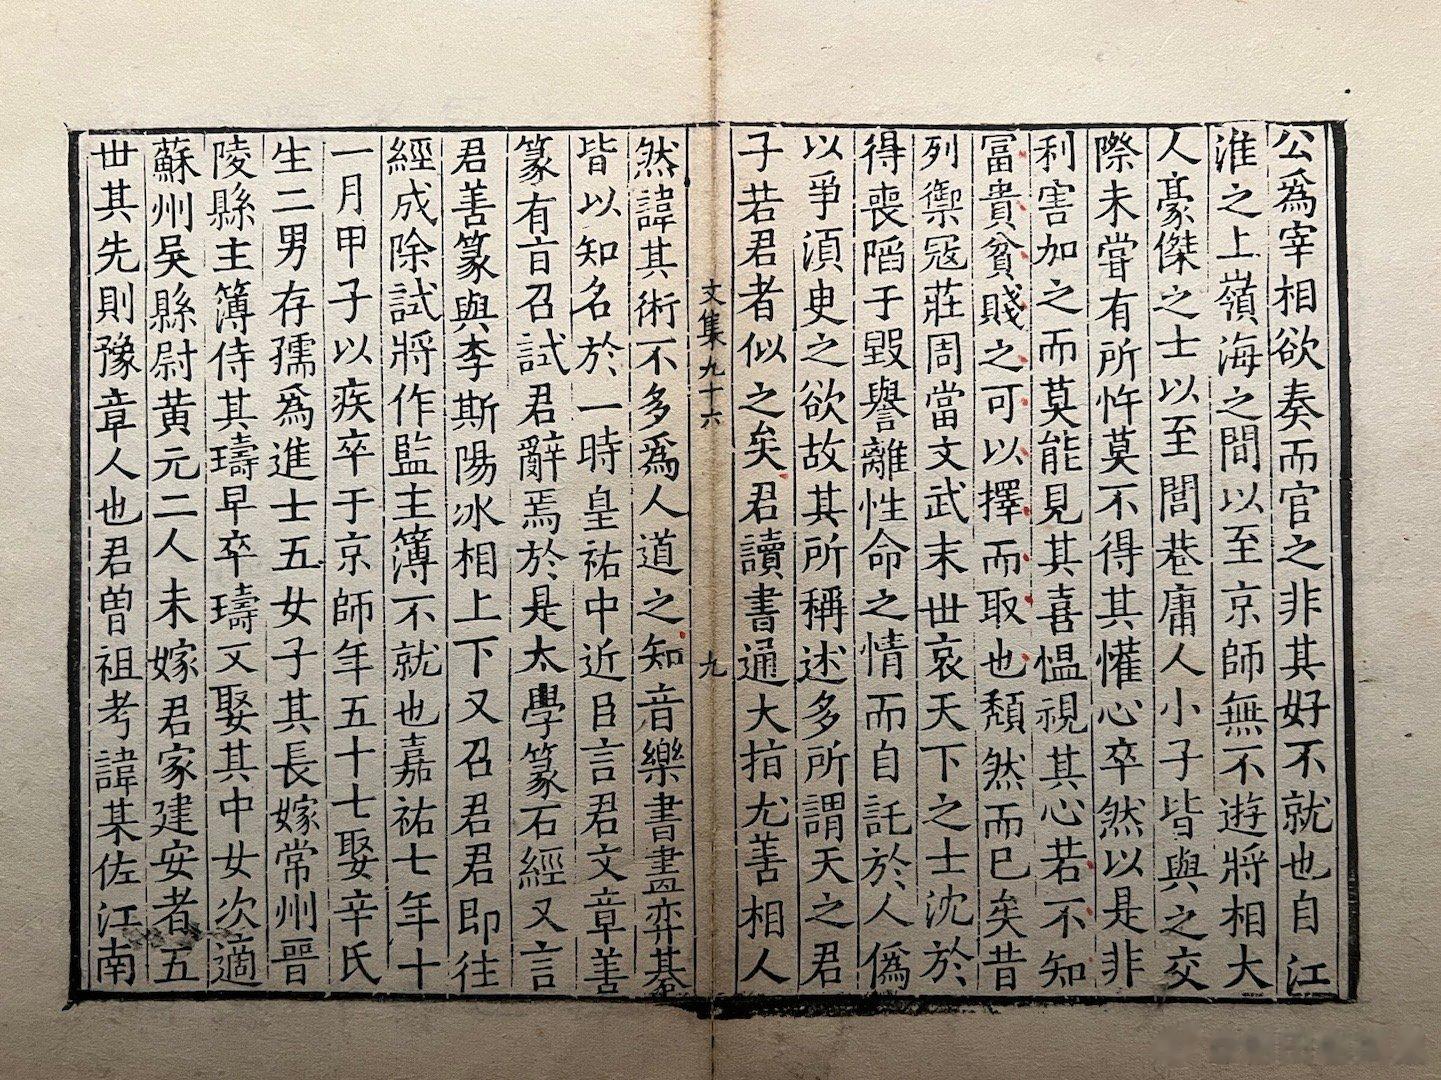 公爲宰相欲奏而官之非其好不就也自江
淮之上嶺海之間以至京師無不遊將相大
人豪傑之士以至閭巷庸人小子皆與之交
際未嘗有所忤莫不得其懽心卒然以是非
利害加之而莫能見其喜愠視其心若不知
冨貴貧賤之可以擇而取也頽然而已矣昔
列禦冦莊周當文武末世哀天下之士沈於
得喪陷于毀譽離性命之情而自託於人僞
以爭湏臾之欲故其所稱述多所謂天之君
子若君者似之矣君讀書通大指尤善相人
文集九十六
九
然諱其術不多爲人道之知音樂書畫弈棊
皆以知名於一時皇祐中近臣言君文章善
篆有旨召試君辭焉於是太學篆石經又言
君善篆與李斯陽冰相上下又召君君即往
經成除試將作監主簿不就也嘉祐七年十
一月甲子以疾卒于京師年五十七娶辛氏
生二男存孺爲進士五女子其長嫁常州晉
陵縣主簿侍其璹早卒璹又娶其中女次適
蘇州吳縣尉黄元二人未嫁君家建安者五
丗其先則豫章人也君曽祖考諱某佐江南